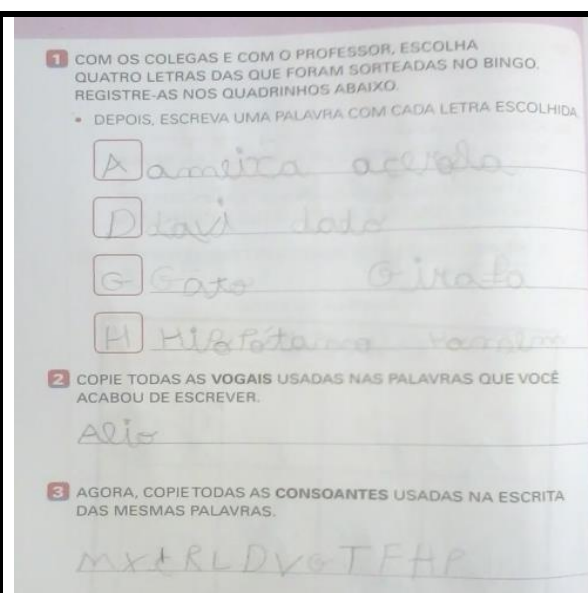 1 COM OS COLEGAS E COM O PROFESSOR, ESCOLHA
QUATRO LETRAS DAS QUE FORAM SORTEADAS NO BINGO.
REGISTRE-AS NOS QUADRINHOS ABAIXO.
• DEPOIS, ESCREVA UMA PALAVRA COM CADA LETRA ESCOLHIDA
A ameixa acerola
D Davi dado
G Gato Girafa
H
2 COPIE TODAS AS VOGAIS USADAS NAS PALAVRAS QUE VOCÊ
ACABOU DE ESCREVER.
Aeio
3 AGORA, COPIE TODAS AS CONSOANTES USADAS NA ESCRITA
DAS MESMAS PALAVRAS.
MX RLDVGTFHP